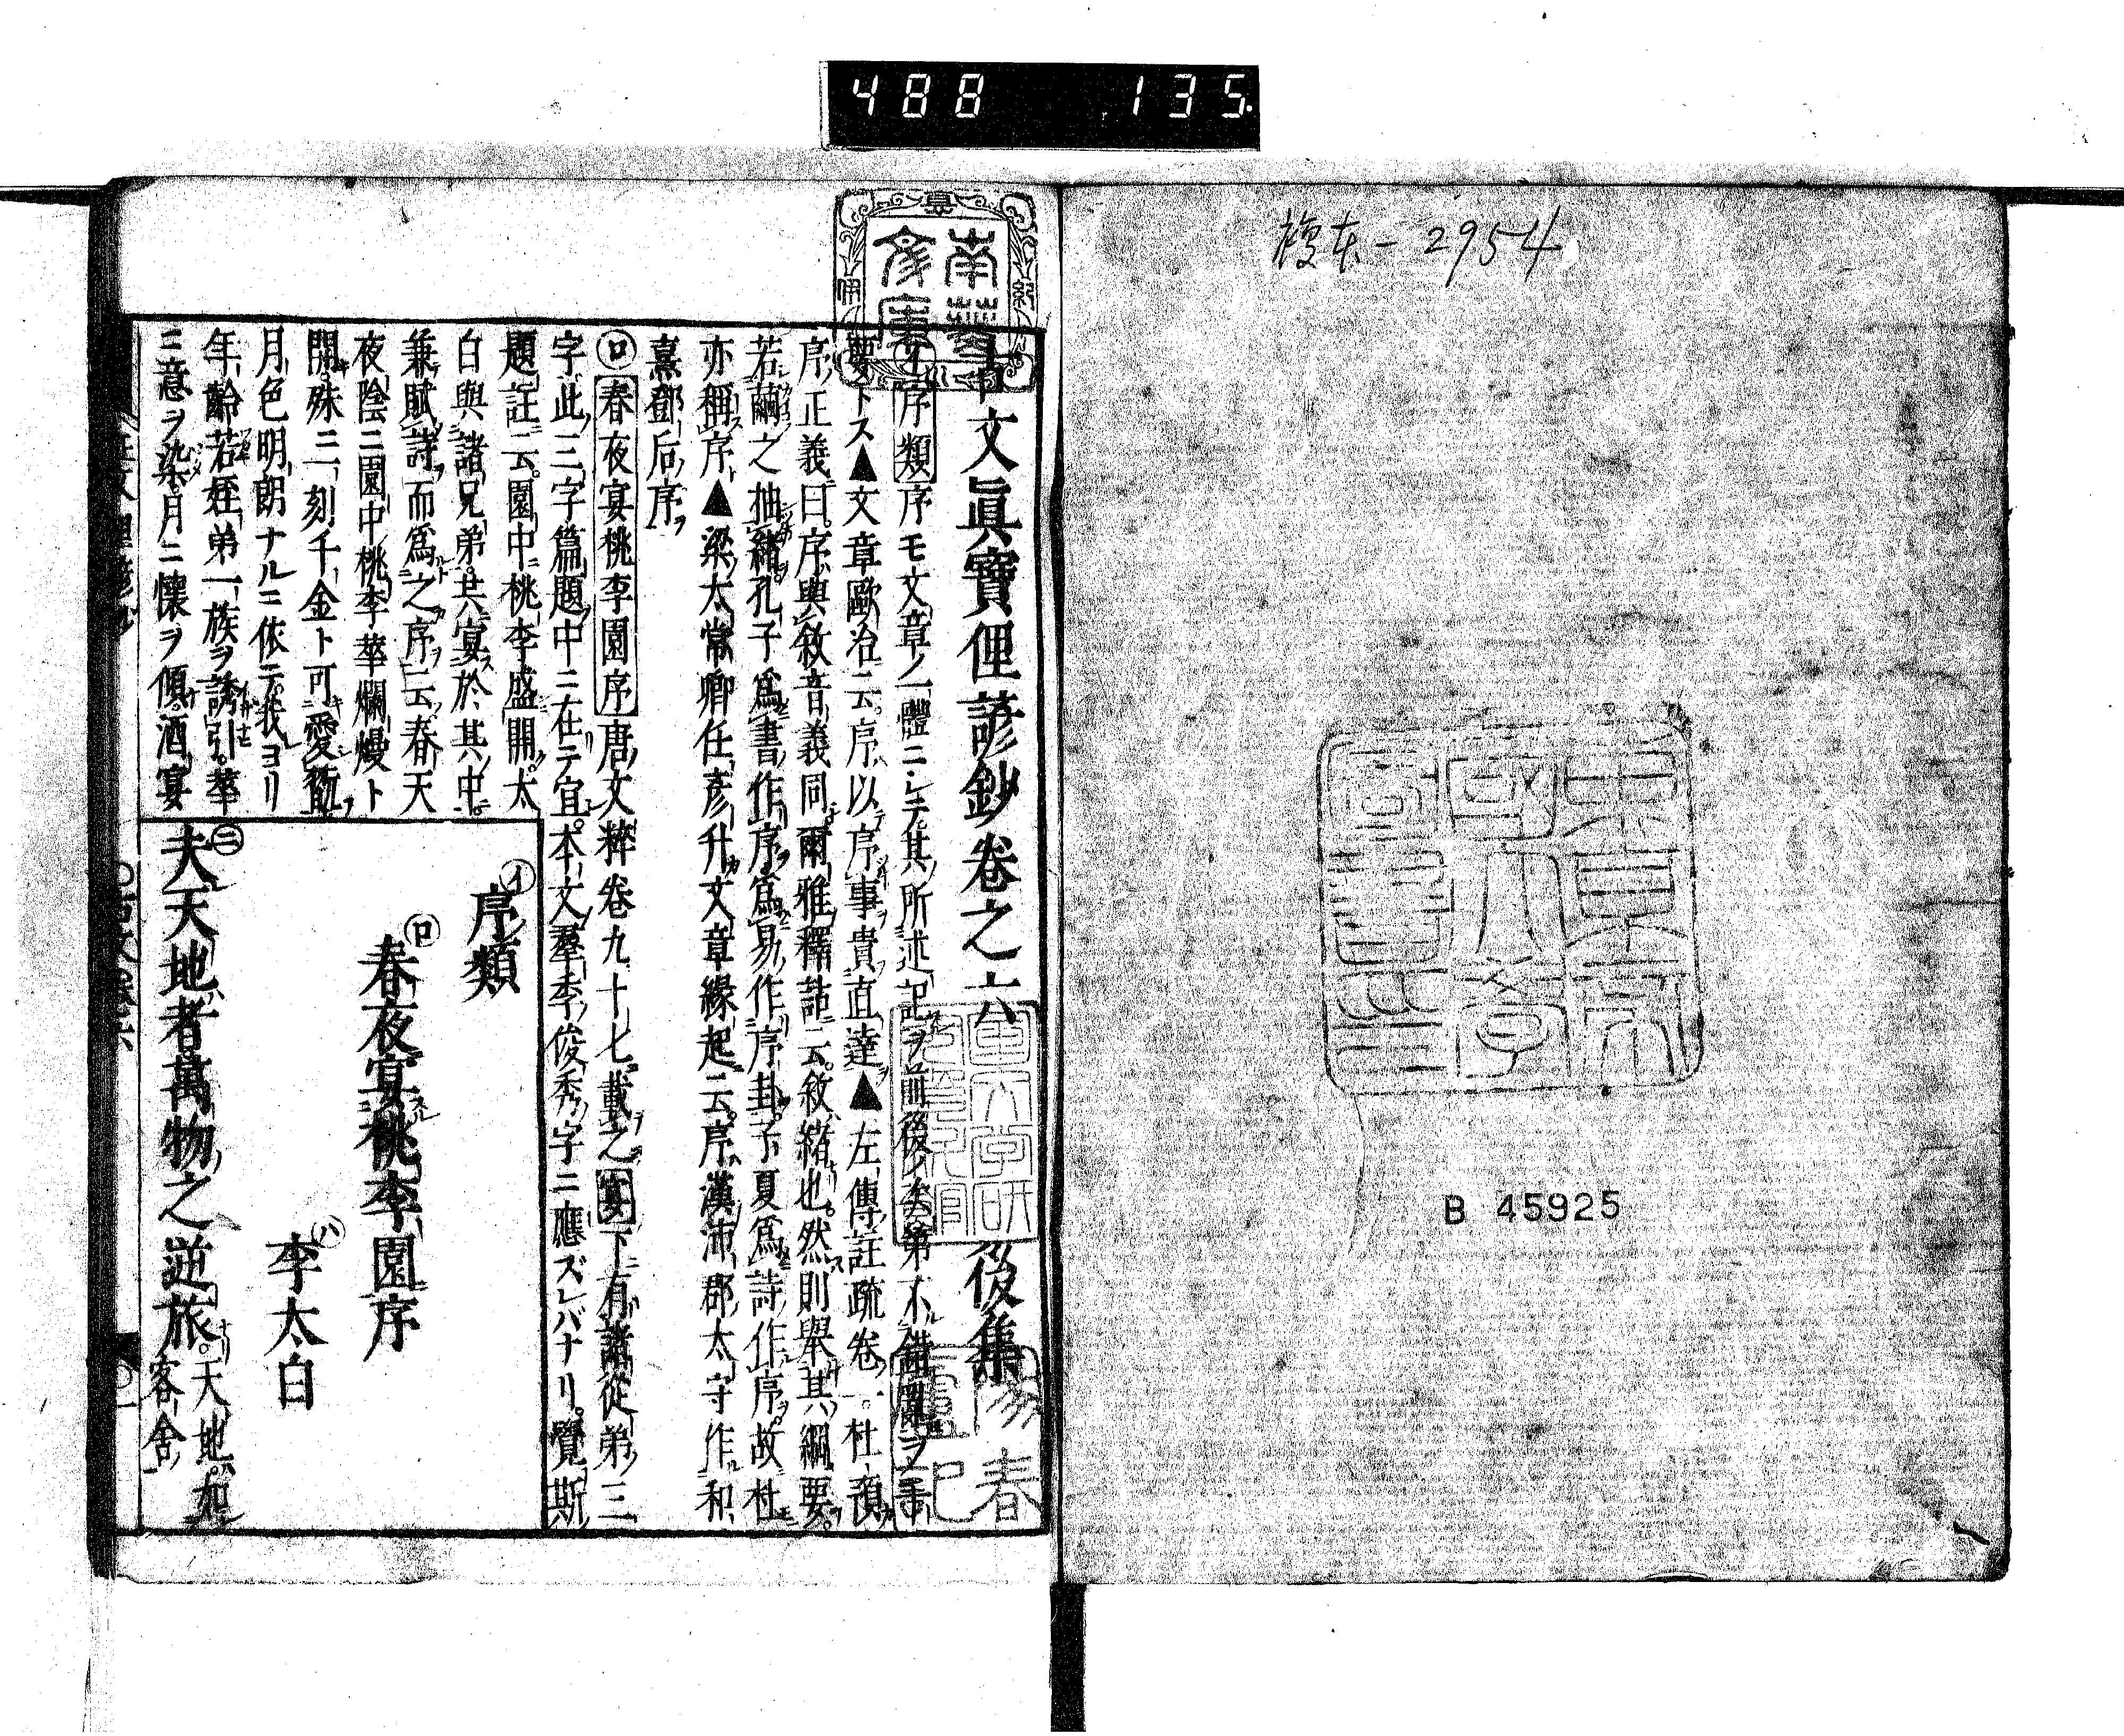 488 135.
複本-2954
東京
帝國大學
圖書印
B 45925
南葵
文庫
文眞寶俚諺鈔卷之六 後集
㋑序類序モ文章ノ一體ニ乄其所述記ヲ前後ノ次第不錯亂ヲ
要トス▲文章歐冶云序以序事貴直達▲左傳註疏卷一杜預
序正義曰序與敘音義同爾雅釋詁云敘緒也然則舉其綱要
若繭之抽緒孔子爲書作序爲易作序卦子夏爲詩作序故杜
亦稱序▲梁太常卿任彦升文章緣起云序漢沛郡太守作和
熹鄧后序
㋺春夜宴桃李園序唐文粹卷九十七載之宴下有諸從弟三
字此三字篇題中ニ在テ宜本文羣季俊秀字ニ應ズレバナリ覺斯
題註云園中桃李盛開太
白與諸兄弟共宴於其中
兼賦詩而爲之序云春天
夜陰ニ園中桃李華爛熳ト
開殊ニ一刻千金ト可愛翫
月色明朗ナルニ依テ我ヨリ
年齡若姪弟一族ヲ誘引華
ニ意ヲ染月ニ懷ヲ傾酒宴
㋑序類
㋺春夜宴桃李園序
㋩李太白
㊁夫天地者萬物之逆旅天地如
客舍